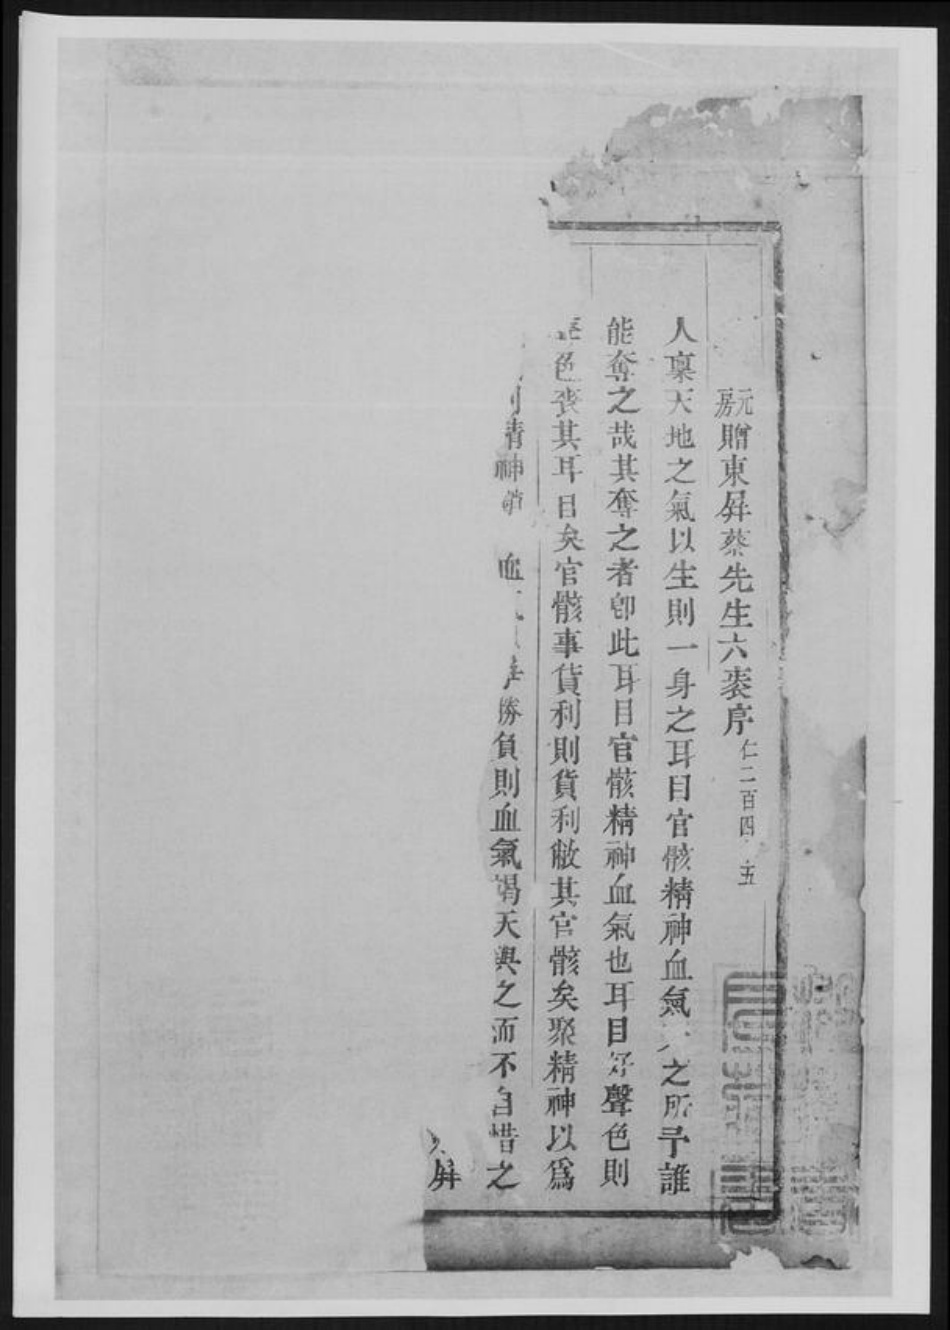 元房贈東屏蔡先生六袠序仁二百四 五
人禀天地之氣以生則一身之耳目官骸精神血氣天之所予誰
能奪之哉其奪之者卽此耳目官骸精神血氣也耳目好聲色則
聲色喪其耳目矣官骸事貨利則貨利敝其官骸矣聚精神以爲
則精神 血 勝負則血氣竭天與之而不自惜之
屏